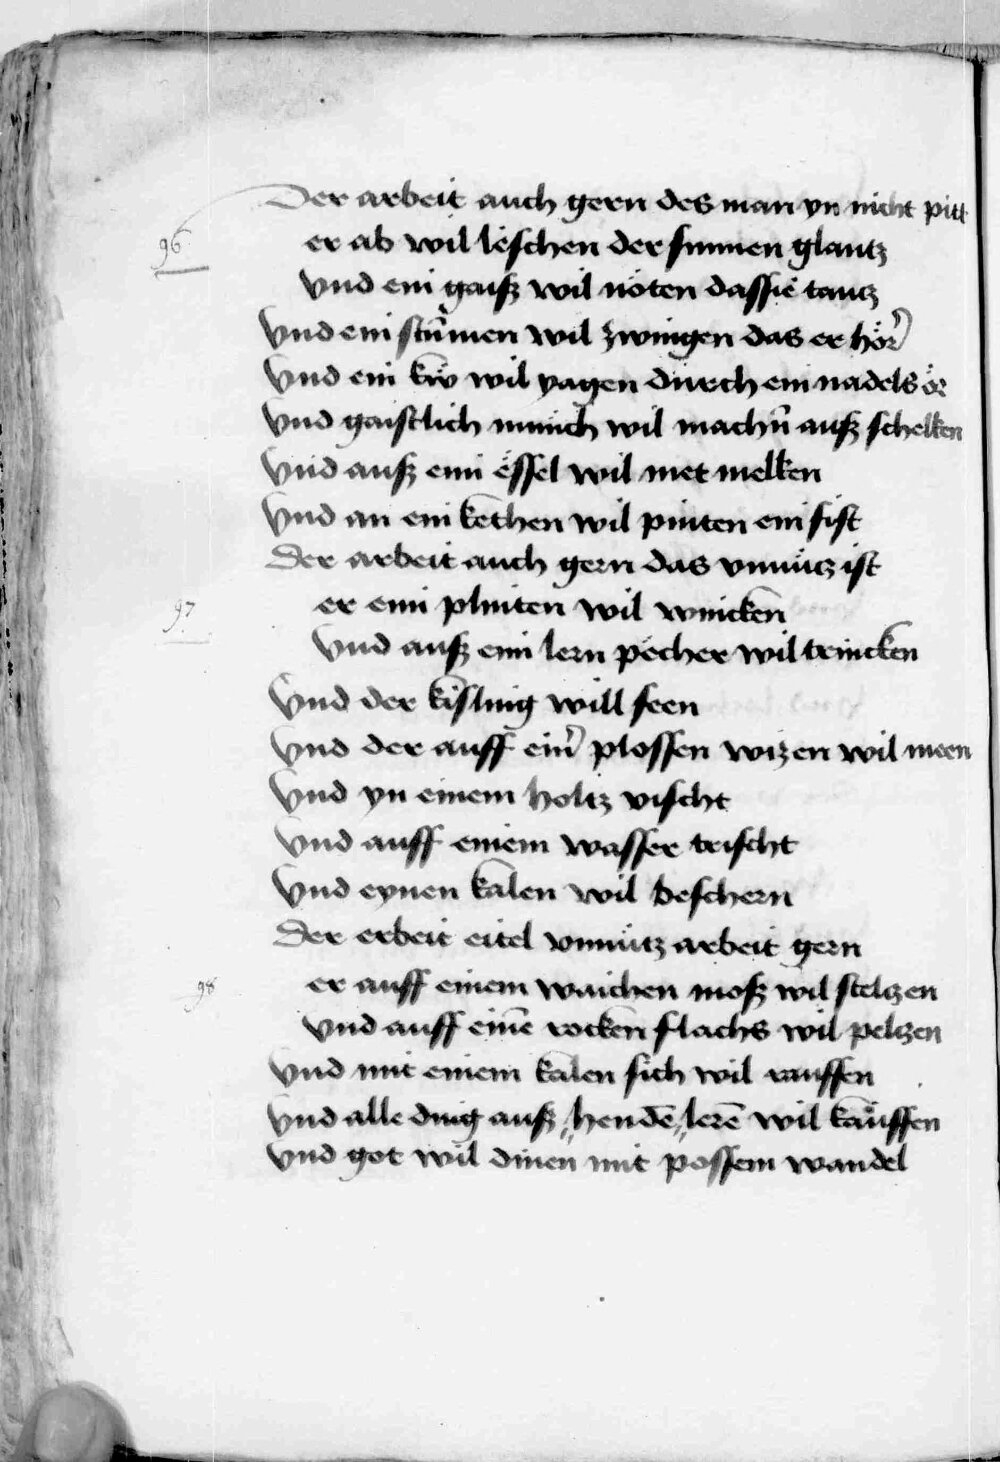 Der arbeit auch gern des man yn nicht pitt
96
er ab wil leschen der sunnen glantz
Vnd ein gaisz wil nöten das sie tantz
Vnd ein stum̄en wil zwingen das er hör
Vnd ein kw̆ wil yagen durch ein nadels ör
Vnd gaistlich münich wil machn̄ ausz schelken
Vnd ausz eim essel wil met melken
Vnd an ein kethen wil pinten ein fist
Der arbeit auch gern das vnnütz ist
97
er eim plinten wil wincken
Vnd ausz eim lern pecher wil trincken
Vnd der kisling will seen
Vnd der auff ein̄ plossen wizen wil meen
Vnd yn einem holtz vischt
Vnd auff einem wasser trischt
Vnd eynen kalen wil beschern
Der erbeit eitel vnnütz arbeit gern
98
er auff einem waichen mosz wil steltzen
Vnd auff eine rocken flachs wil peltzen
Vnd mit einem kalen sich wil rauffen
Vnd alle ding ausz hendē lerē wil kauffen
Vnd got wil dinen mit possem wandel